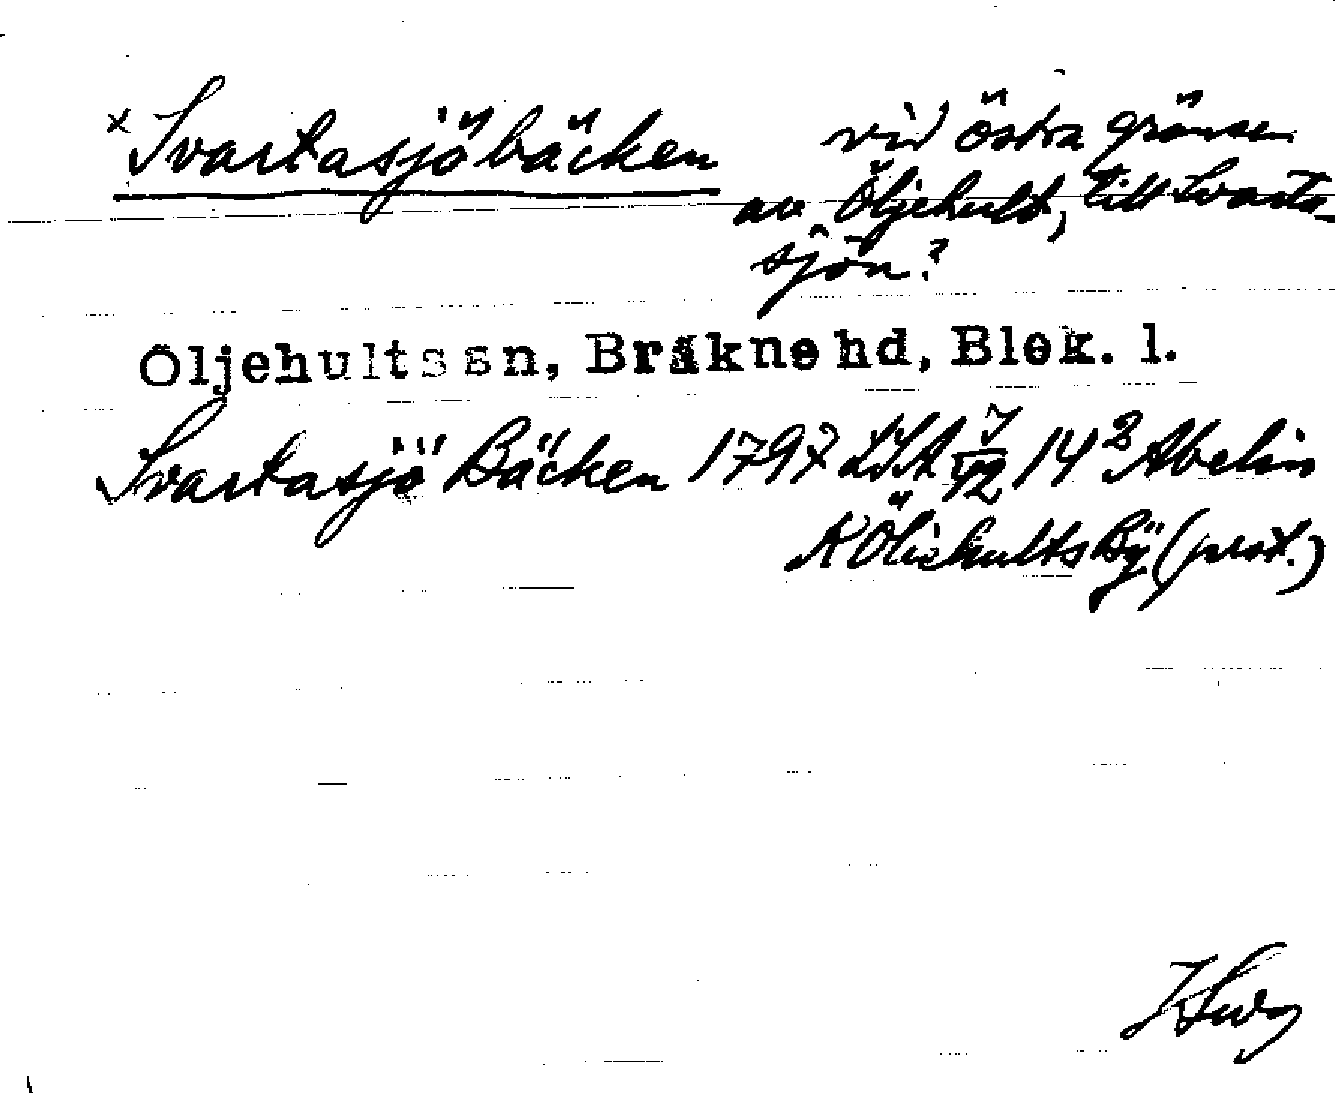 x Svartasjöbäcken vid östra gränsen
av Öljehult, till Svarta-
sjön?
Öljehults sn, Bräkne hd, Blek. l.
Svartasjö Bäcken 1797 LSA 14² Abelin
K Öliehults Bÿ (prot.)